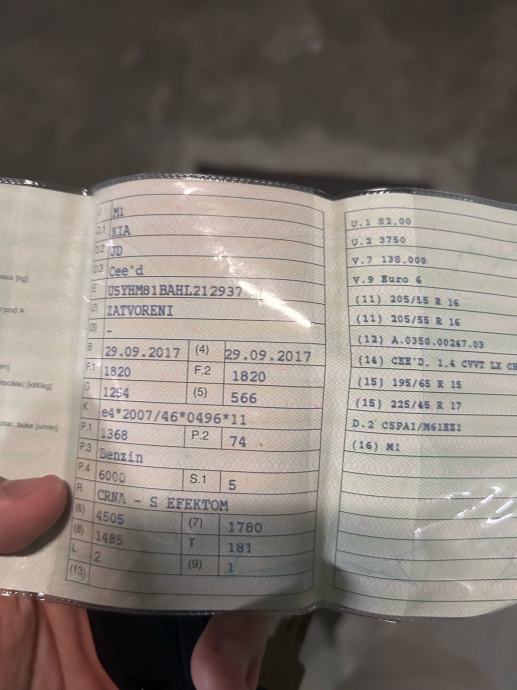 J MI
D.1 KIA
D.2 JD
D.3 Cee'd
E U5YHM81BAHL212937
(2) ZATVORENI
(3) -
B 29.09.2017 (4) 29.09.2017
F.1 1820 F.2 1820
G 1254 (5) 566
K e4*2007/46*0496*11
P.1 1368 P.2 74
P.3 Benzin
P.4 6000 S.1 5
R CRNA - S EFEKTOM
(6) 4505 (7) 1780
(8) 1485 T 181
L 2 (9) 1
(13)
U.1 82,00
U.2 3750
V.7 138,000
V.9 Euro 6
(11) 205/55 R 16
(11) 205/55 R 16
(12) A.0350.00247.03
(14) CEE'D. 1.4 CVVT LX
(15) 195/65 R 15
(15) 225/45 R 17
D.2 C5PA1/M61EZ1
(16) M1
[kg]
pod A